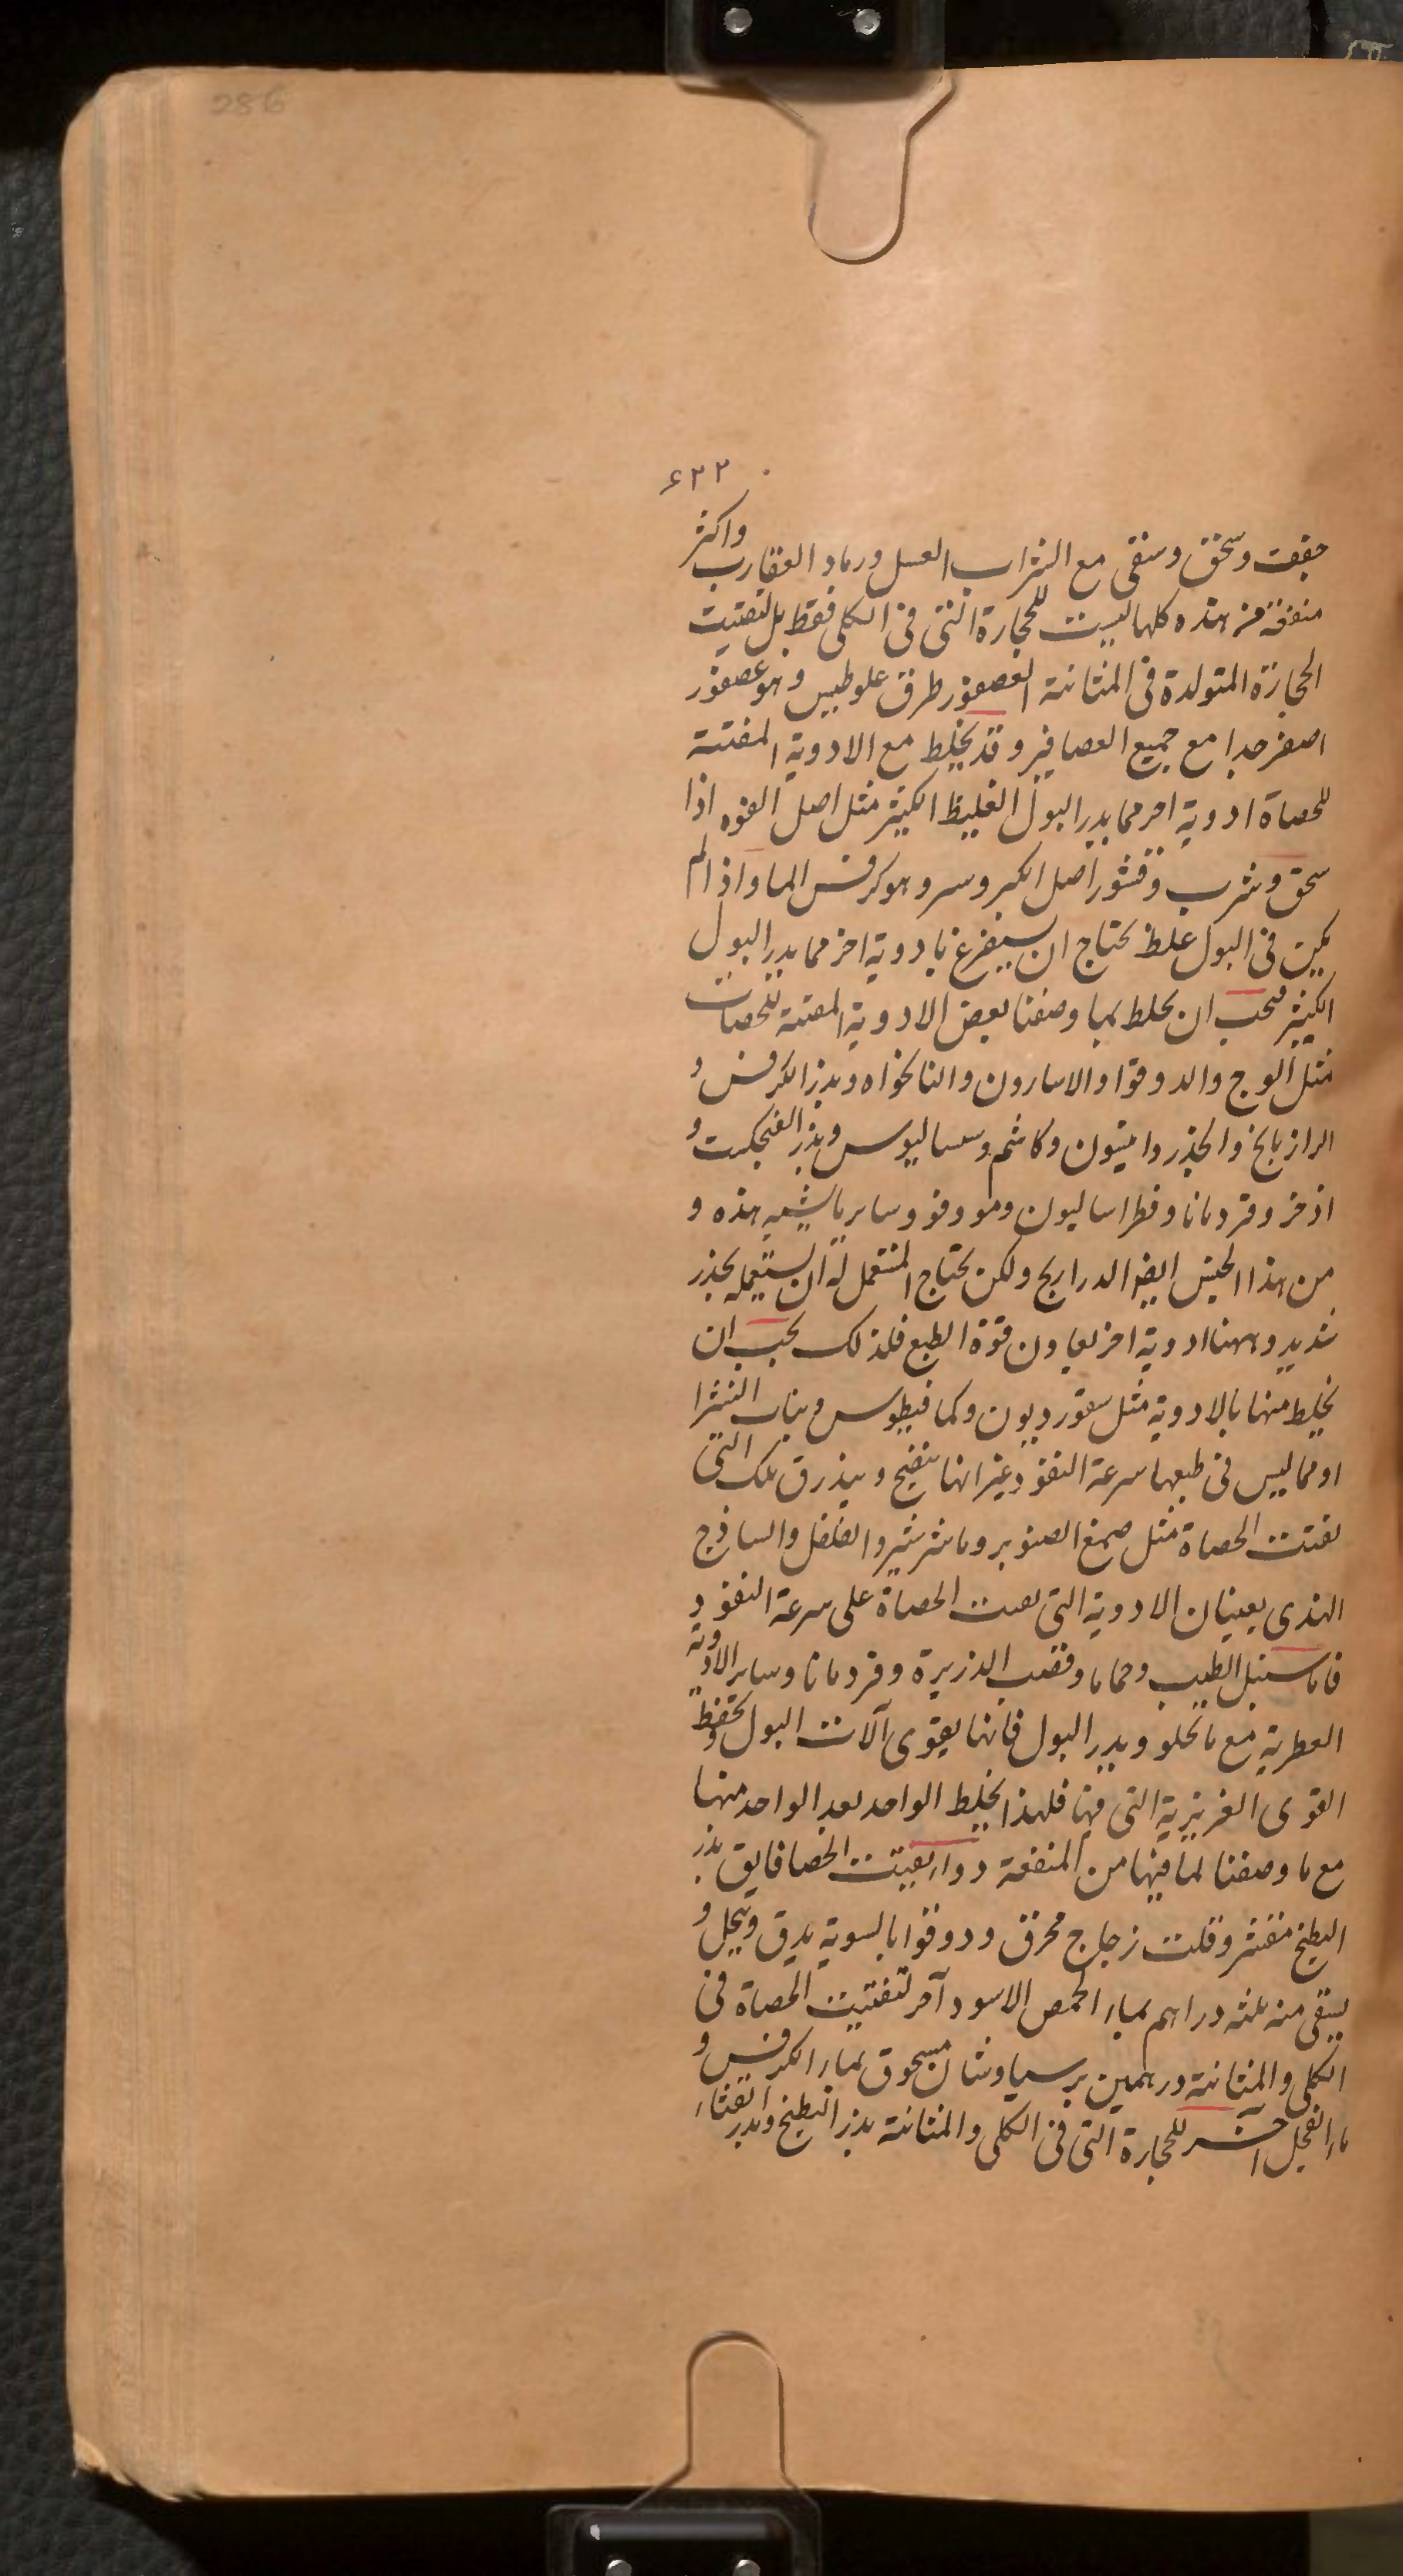 286
۶۲۲
جففت وسحق وسقى مع الشراب العسل ورماد العقارب واكثر
منفعة من هذه كلها ليست للحجارة التى فى الكلى فقط بل لتفتيت
الحجارة المتولدة فى المثانة العصفور طرق علوطيس وهو عصفور
اصغر جدا مع جميع العصافير وقد يخلط مع الادوية المفتتة
للحصاة ادوية اخر مما يدر البول الغليظ الكثير مثل اصل الفوه اذا
سحق وشرب وقشور اصل الكبر وسر وهو كرفس الما واذا لم
يكن فى البول غلظ يحتاج ان يستفرغ بادوية اخر مما يدر البول
الكثير فيجب ان يخلط بما وصفنا بعض الادوية المفتتة للحصات
مثل الوج والدوقوا والاسارون والنانخواه وبذر الكرفس و
الرازيانج والجذر واميون وكاشم وسساليوس وبذر الفنجكست و
اذخر وقردمانا وفطراساليون ومو وفو وساير ما يشبه هذه و
من هذا الجنس ايضا الدراريح ولكن يحتاج المستعمل له ان يستعمله بحذر
شديد وههنا ادوية اخر يعاون قوة الطبع فلذلك يجب ان
يخلط منها بالادوية مثل سقورديون وكمافيطوس وبنات الشرا
او مما ليس فى طبعها سرعة النفوذ غير انها تنضج ويبذرق تلك التى
تفتت الحصاة مثل صمغ الصنوبر وما شرشير والفلفل والساذج
الهندى يعينان الادوية التى تفتت الحصاة على سرعة النفوذ
فاما سنبل الطيب وحماما وقصب الذريرة وقردمانا وساير الادوية
العطرية مع ما تجلو ويدر البول فانها يقوى آلات البول وتحفظ
القوى الغريزية التى فيها فلهذا يخلط الواحد بعد الواحد منها
مع ما وصفنا لما فيها من المنفعة دواء يفتت الحصا فايق بذر
البطيخ مقشر وقلت زجاج محرق ودوقوا بالسوية يدق وينخل و
يسقى منه ثلثه دراهم بماء الحمص الاسود آخر لتفتيت الحصاة فى
الكلى والمثانة درهمين برسياوشان مسحوق بماء الكرفس و
ماء الفجل آخر للحجارة التى فى الكلى والمثانة بذر البطيخ وبذر القثاء